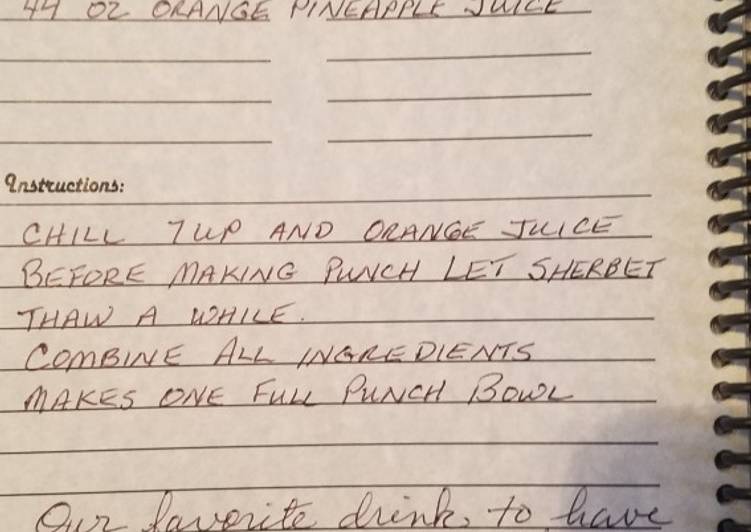 44 OZ ORANGE PINEAPPLE JUICE
Instructions:
CHILL 7UP AND ORANGE JUICE
BEFORE MAKING PUNCH LET SHERBET
THAW A WHILE.
COMBINE ALL INGREDIENTS
MAKES ONE FULL PUNCH BOWL
Our favorite drink, to have